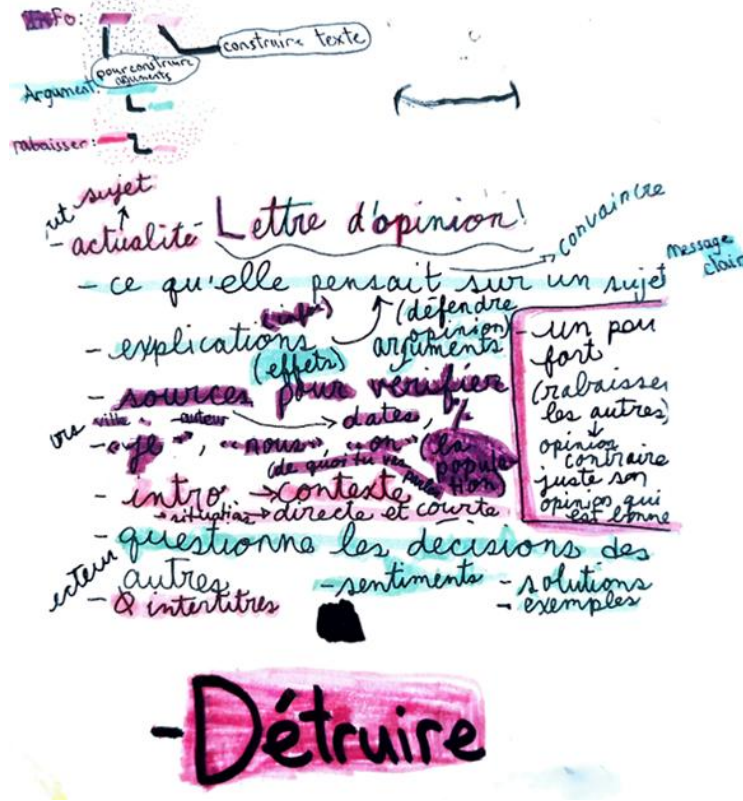 Info:
construire texte
pour construire
arguments
Argument:
rabaisser:
sujet
- actualité
Lettre d'opinion!
convaincre
message
clair
- ce qu'elle pensait sur un sujet
(infos)
(défendre
opinion)
- explications
arguments
(effets)
- sources pour vérifier
ville
auteur
dates,
- "je", "nous" "on" (la
population)
(de quoi tu vas
parler
- intro → contexte
- situation → directe et courte
- questionne les décisions des
autres
- sentiments
- solutions
- exemples
- 0 intertitres
- un peu
fort
(rabaisser
les autres)
opinion
contraire
juste son
opinion qui
est bonne
- Détruire